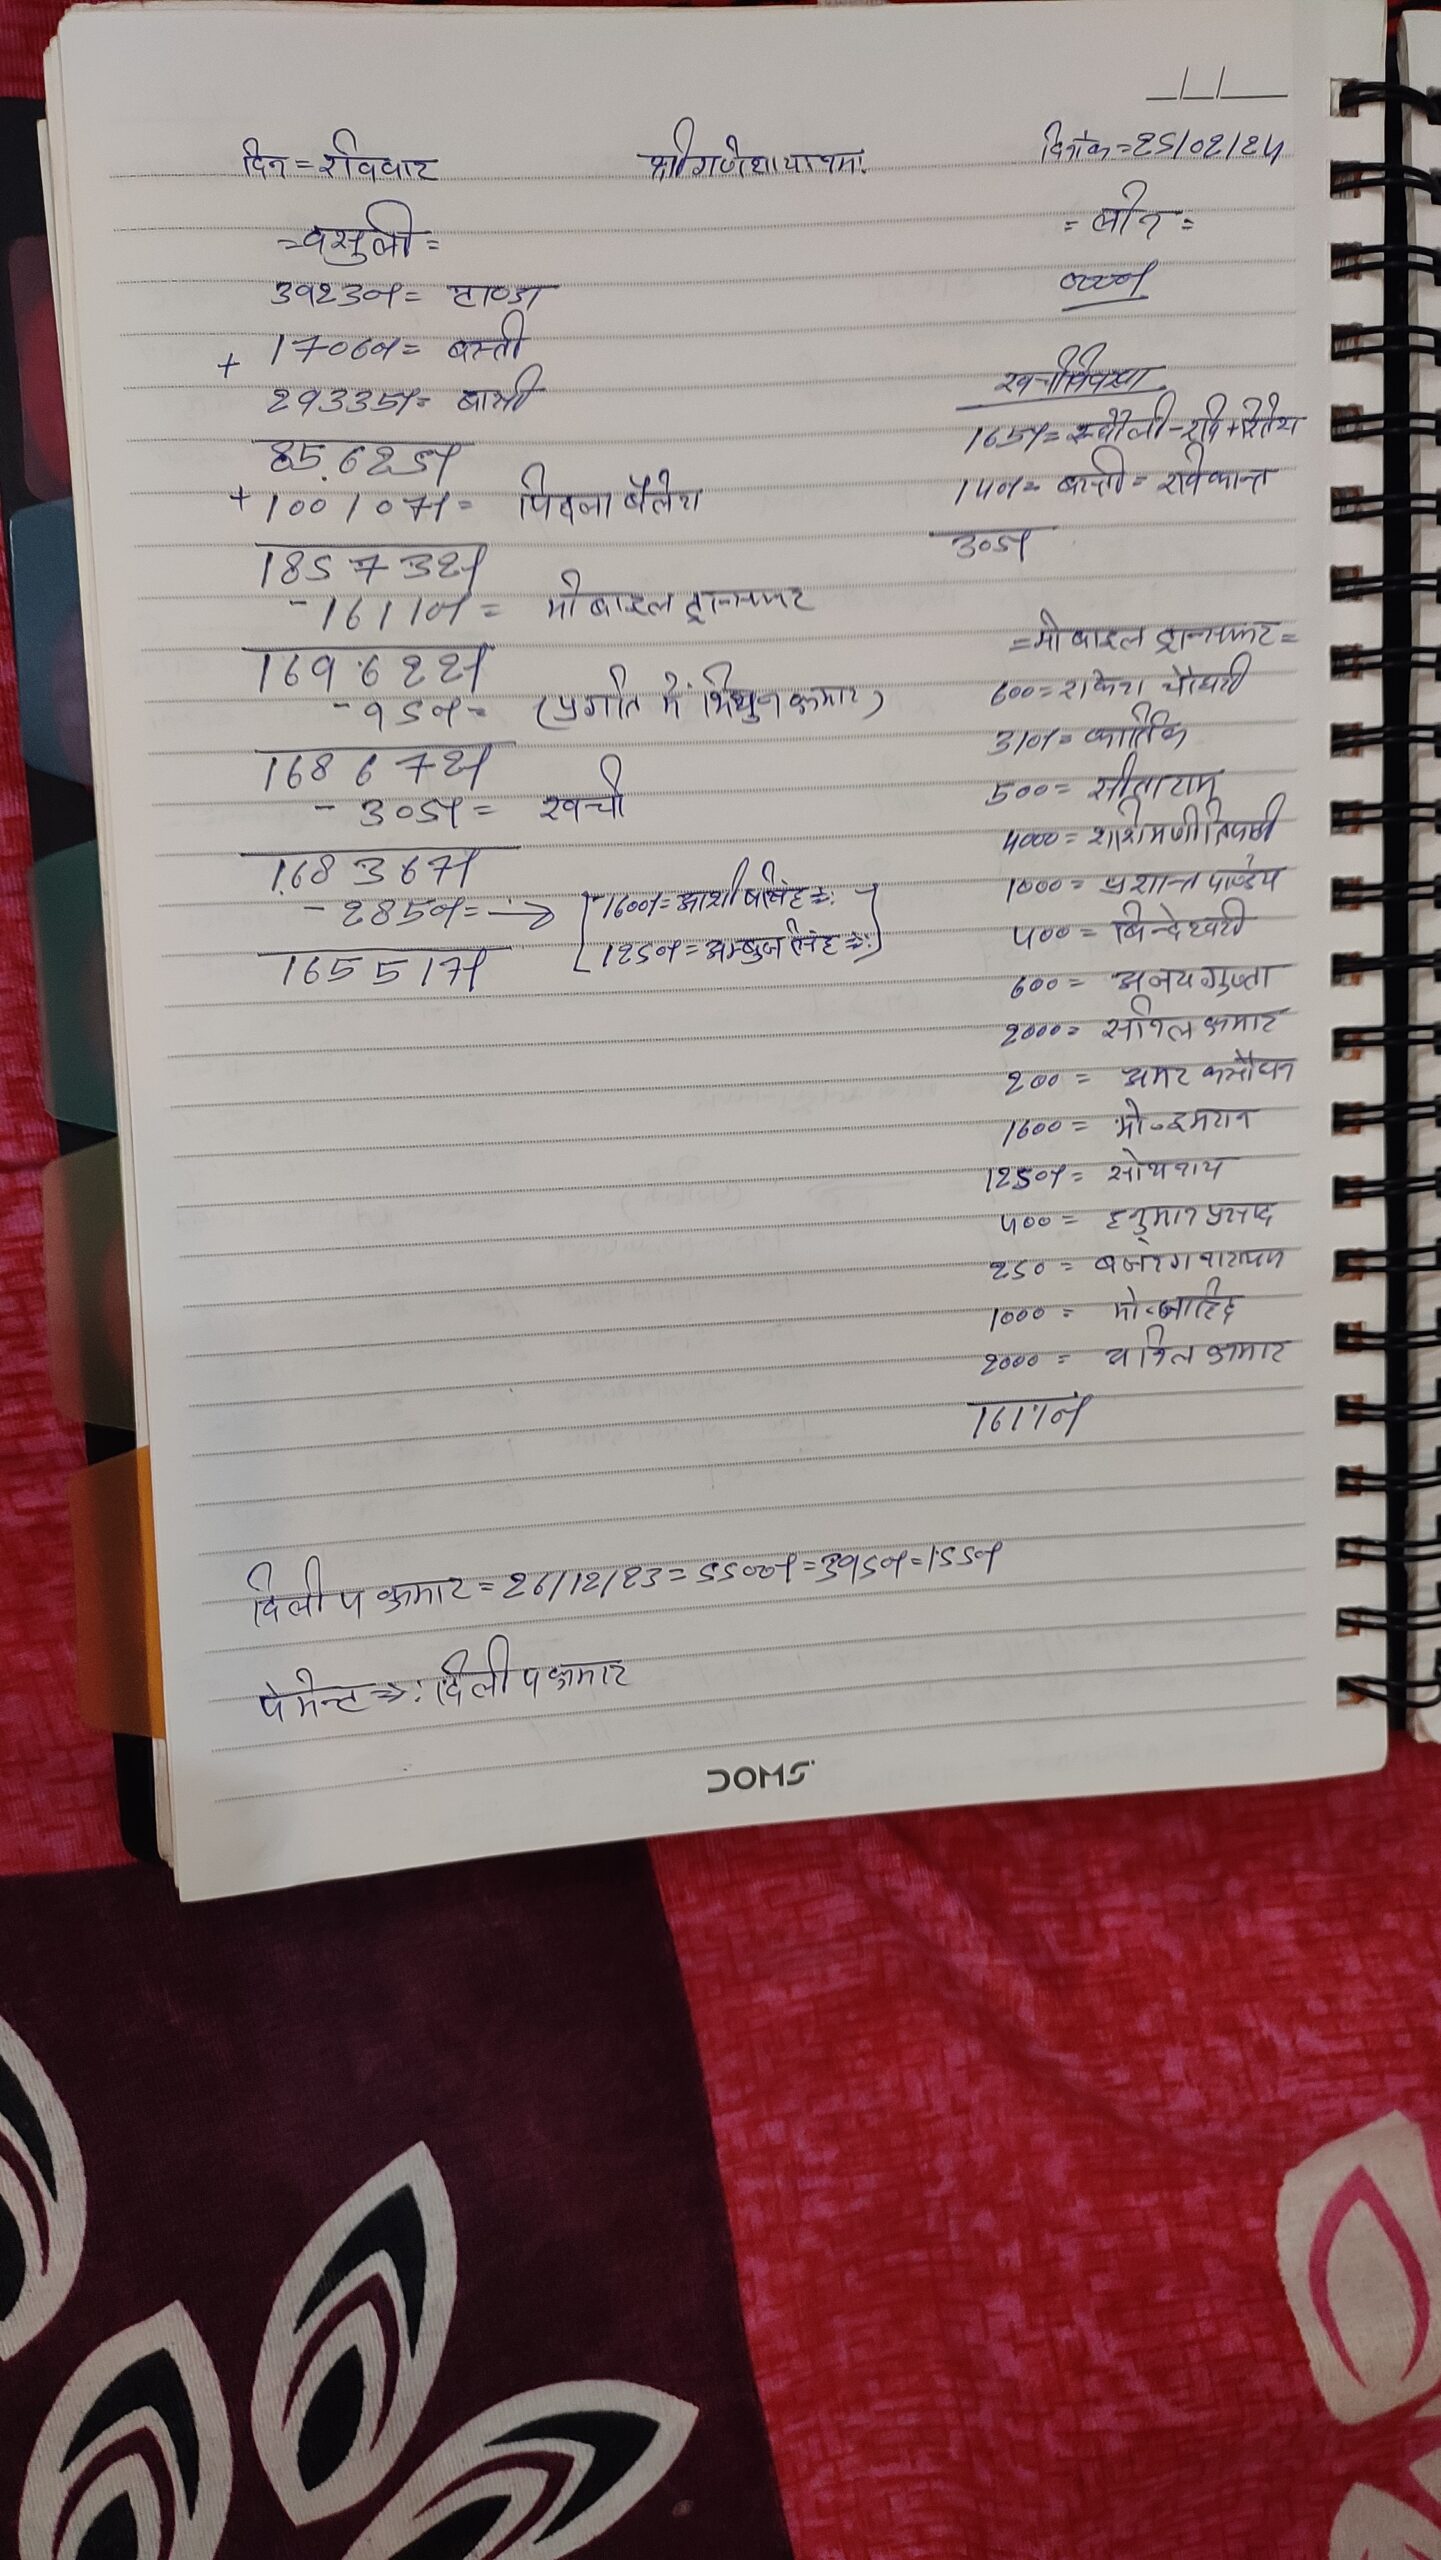 दिन = रविवार श्री गणेशाय नमः दिनांक = 25/02/24
= वसुली = = लोन =
39230/- = टाण्डा
+ 17060/- = बस्ती
29335/- = बासी
85,625/-
+ 100107/- = पिछला बैलेंस
185732/-
- 16110/- = मोबाइल ट्रान्सफर
169622/-
- 950/- = (प्रगति में मिथुन कुमार)
168672/-
- 305/- = खर्चा
168367/-
- 2850/- = → [1600/- = आशीष सिंह ⇒:
1250/- = अम्बुज सिंह ⇒:]
165517/-
165/- = रूधौली - रवि + रितेश
140/- = बस्ती = रविकान्त
305/-
= मोबाइल ट्रान्सफर =
600 = राकेश चौधरी
310/- = कार्तिक
500 = सीताराम
4000 = शशिमणी त्रिपाठी
1000 = प्रशान्त पाण्डेय
400 = बिन्देश्वरी
600 = अजय गुप्ता
2000 = सुनिल कुमार
200 = अमर कसौधन
1600 = मो॰ इमरान
1250/- =
400 = हनुमान प्रसाद
250 = बजरंग नारायण
1000 = मो॰ जाहिद
2000 = अनिल कुमार
16110/-
दिलीप कुमार = 26/12/23 = 5500/- = 3950/- = 1550/-
पेमेन्ट ⇒: दिलीप कुमार
DOMS